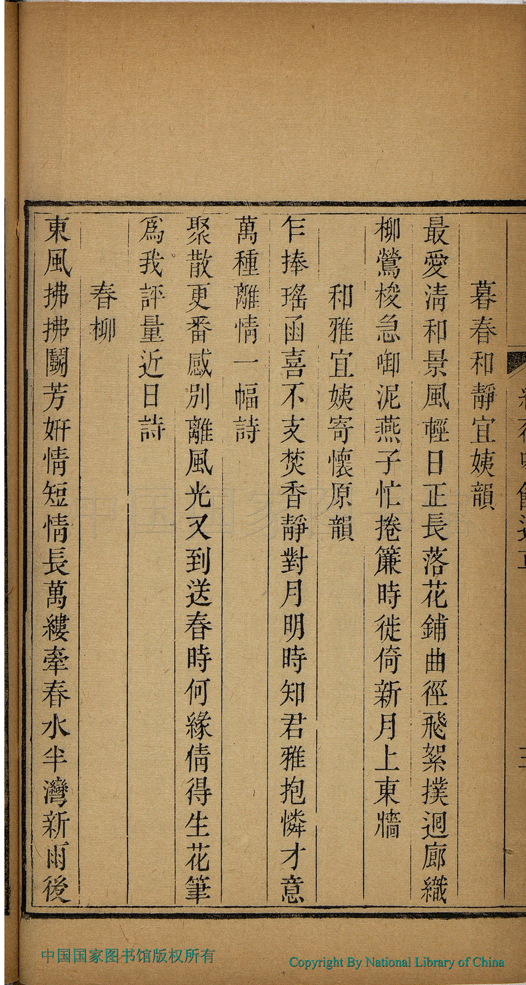 暮春和靜宜姨韻
最愛淸和景風輕日正長落花鋪曲徑飛絮撲迴廊織
柳鶯梭急啣泥燕子忙捲簾時徙倚新月上東牆
和雅宜姨寄懷原韻
乍捧瑤函喜不支焚香靜對月明時知君雅抱憐才意
萬種離情一幅詩
聚散更番感別離風光又到送春時何緣倩得生花筆
爲我評量近日詩
春柳
東風拂拂鬭芳姸情短情長萬縷牽春水半灣新雨後
中国国家图书馆版权所有
Copyright By National Library of China